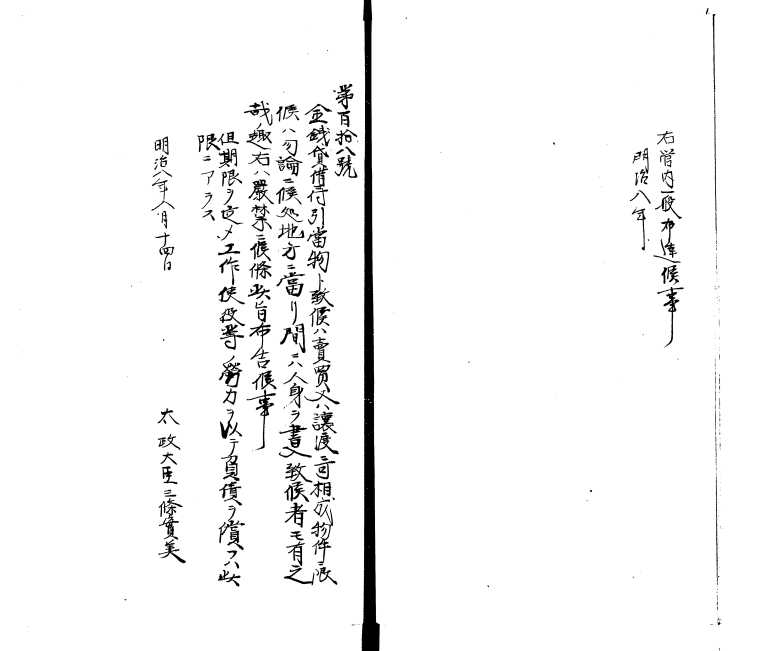 右管内一般布達候事
明治八年
第百拾八號
金銭貸借付引當物ト致候ハ賣買又ハ讓渡ニ可相成物件ニ限
候ハ勿論ニ候処地方ニ當リ間ニハ人身ヲ書入致候者モ有之
哉ノ趣右ハ嚴禁ニ候條此旨布告候事
但期限ヲ定メ工作使役等ノ勞力ヲ以テ負債ヲ償フハ此
限ニアラス
明治八年八月十四日
太政大臣三條實美